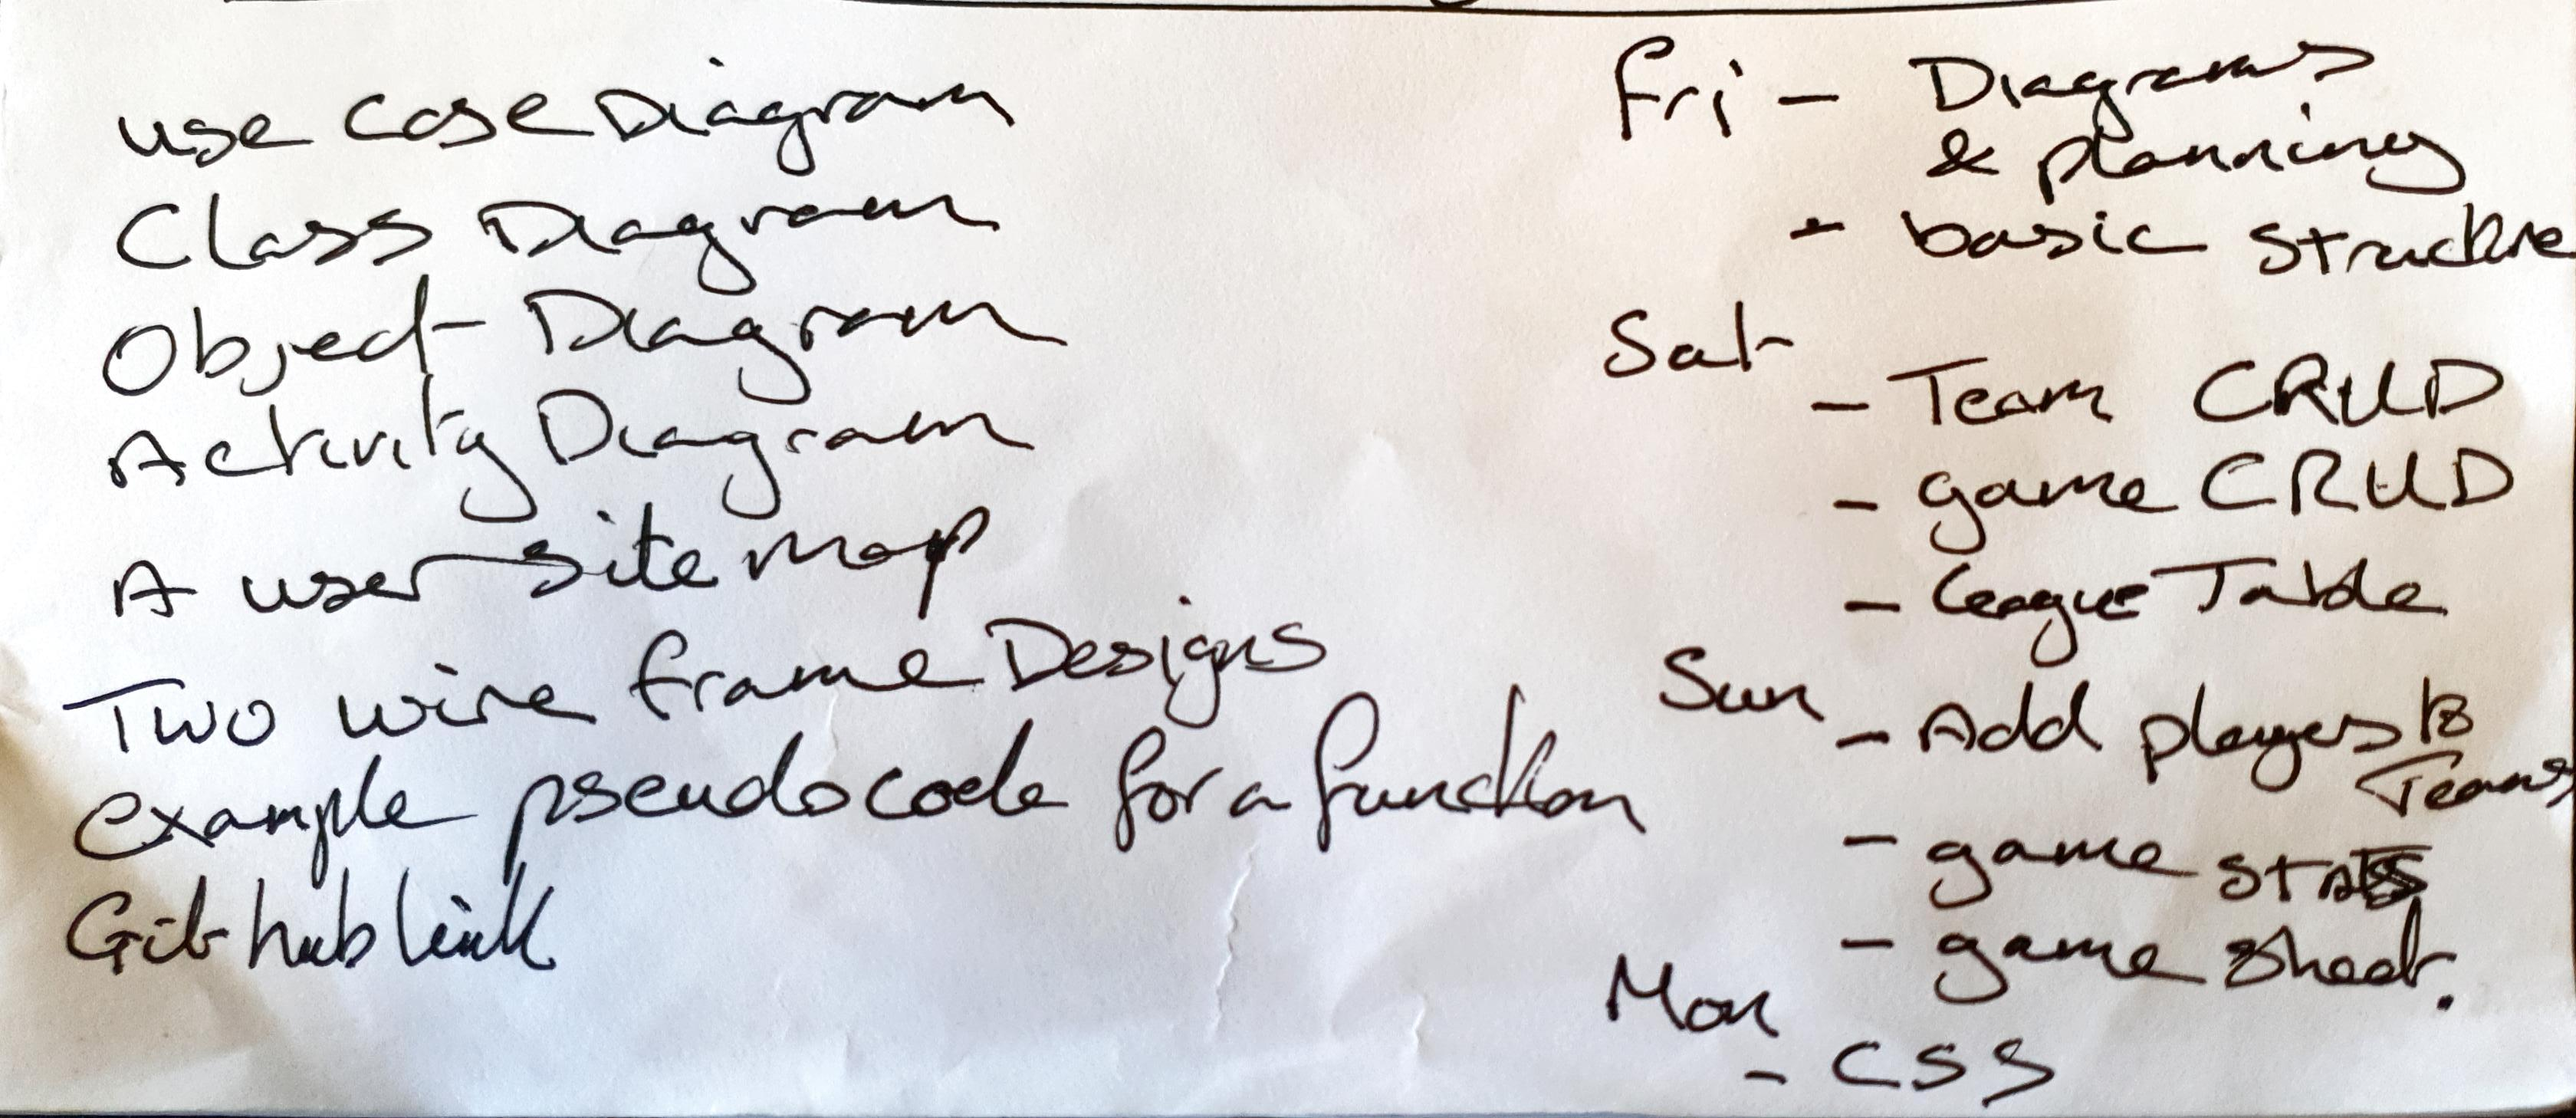 use case Diagram
Class Diagram
Object Diagram
Activity Diagram
A user site map
Two wire frame Designs
example pseudocode for a function
Git hub link
Fri - Diagrams
& planning
- basic structure
Sat
- Team CRUD
- game CRUD
- league Table
Sun
- Add players to
Teams
- game stats
- game sheet.
Mon
- CSS